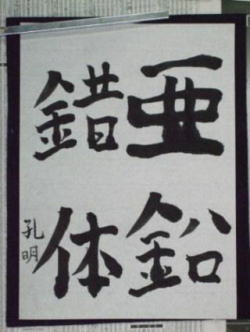 亜鉛
錯体
孔明